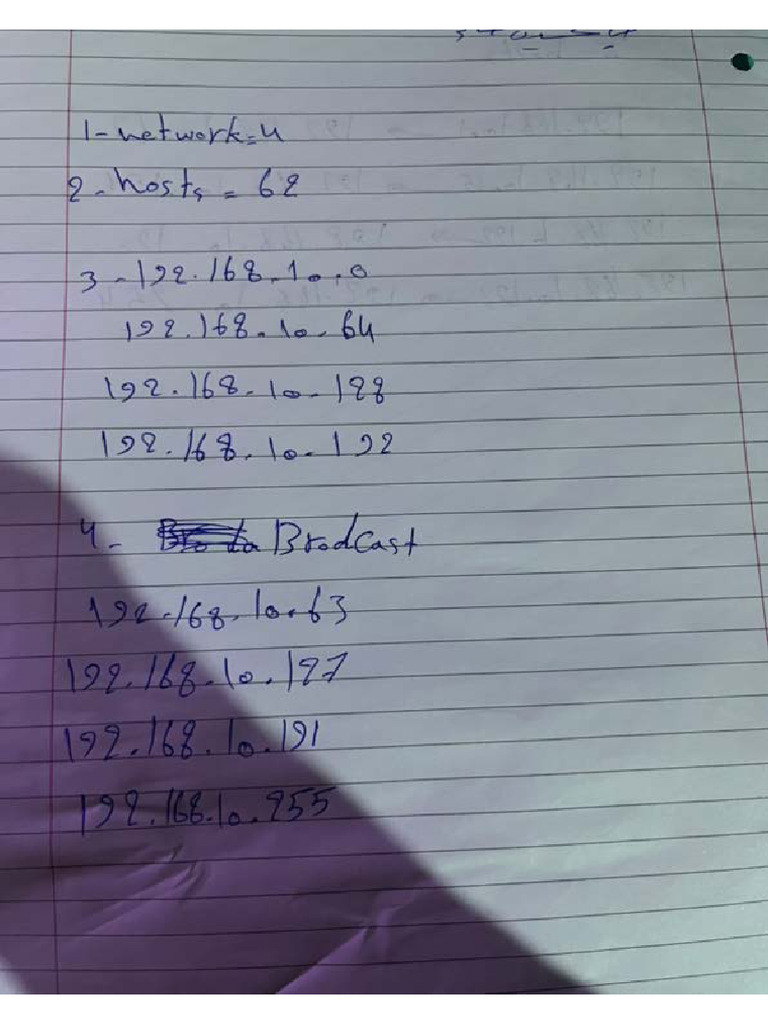 1-network=4
2-hosts = 62
3-192.168.10.0
192.168.10.64
192.168.10.128
192.168.10.192
4- Brodcast
192.168.10.63
192.168.10.127
192.168.10.191
192.168.10.255